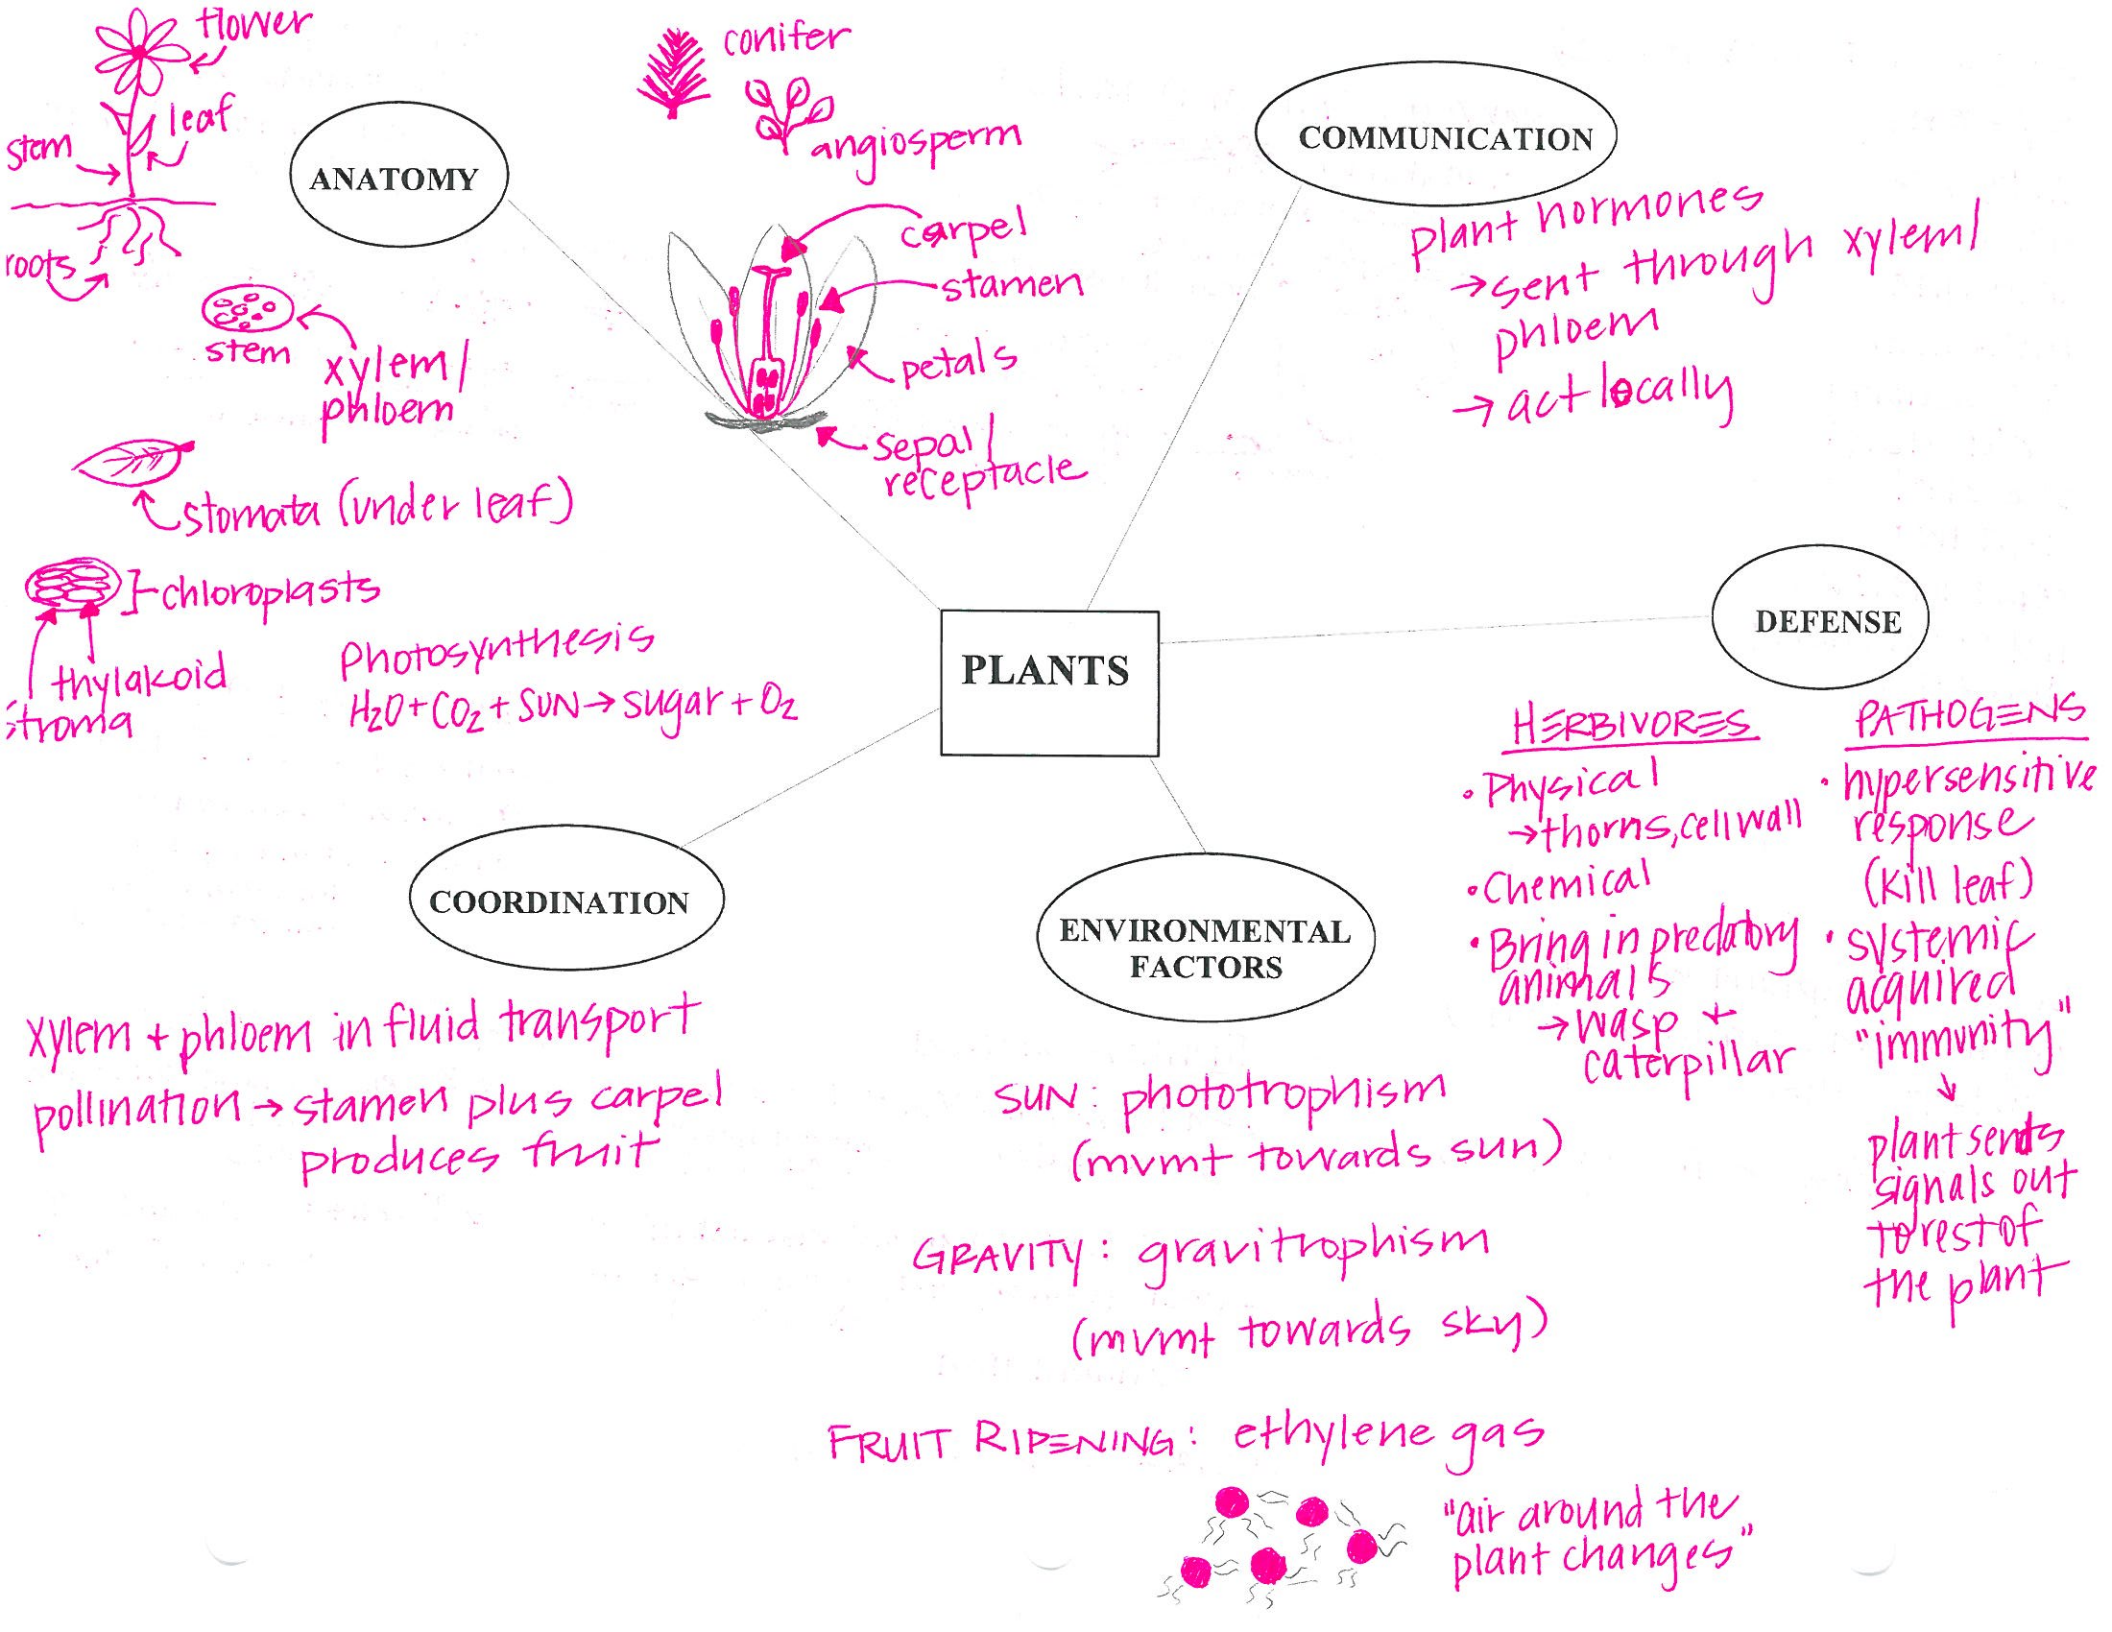 flower
leaf
stem
roots
ANATOMY
conifer
angiosperm
stem
xylem/
phloem
stomata (under leaf)
chloroplasts
thylakoid
stroma
Photosynthesis
H₂O + CO₂ + SUN → sugar + O₂
carpel
stamen
petals
sepal/
receptacle
COMMUNICATION
plant hormones
→ sent through xylem/
phloem
→ act locally
PLANTS
DEFENSE
HERBIVORES
• Physical
→ thorns, cell wall
• Chemical
• Bring in predatory
animals
→ wasp +
caterpillar
PATHOGENS
• hypersensitive
response
(kill leaf)
• systemic
acquired
"immunity"
↓
plant sends
signals out
to rest of
the plant
COORDINATION
xylem + phloem in fluid transport
pollination → stamen plus carpel
produces fruit
ENVIRONMENTAL
FACTORS
SUN: phototrophism
(mvmt towards sun)
GRAVITY: gravitrophism
(mvmt towards sky)
FRUIT RIPENING: ethylene gas
"air around the
plant changes"